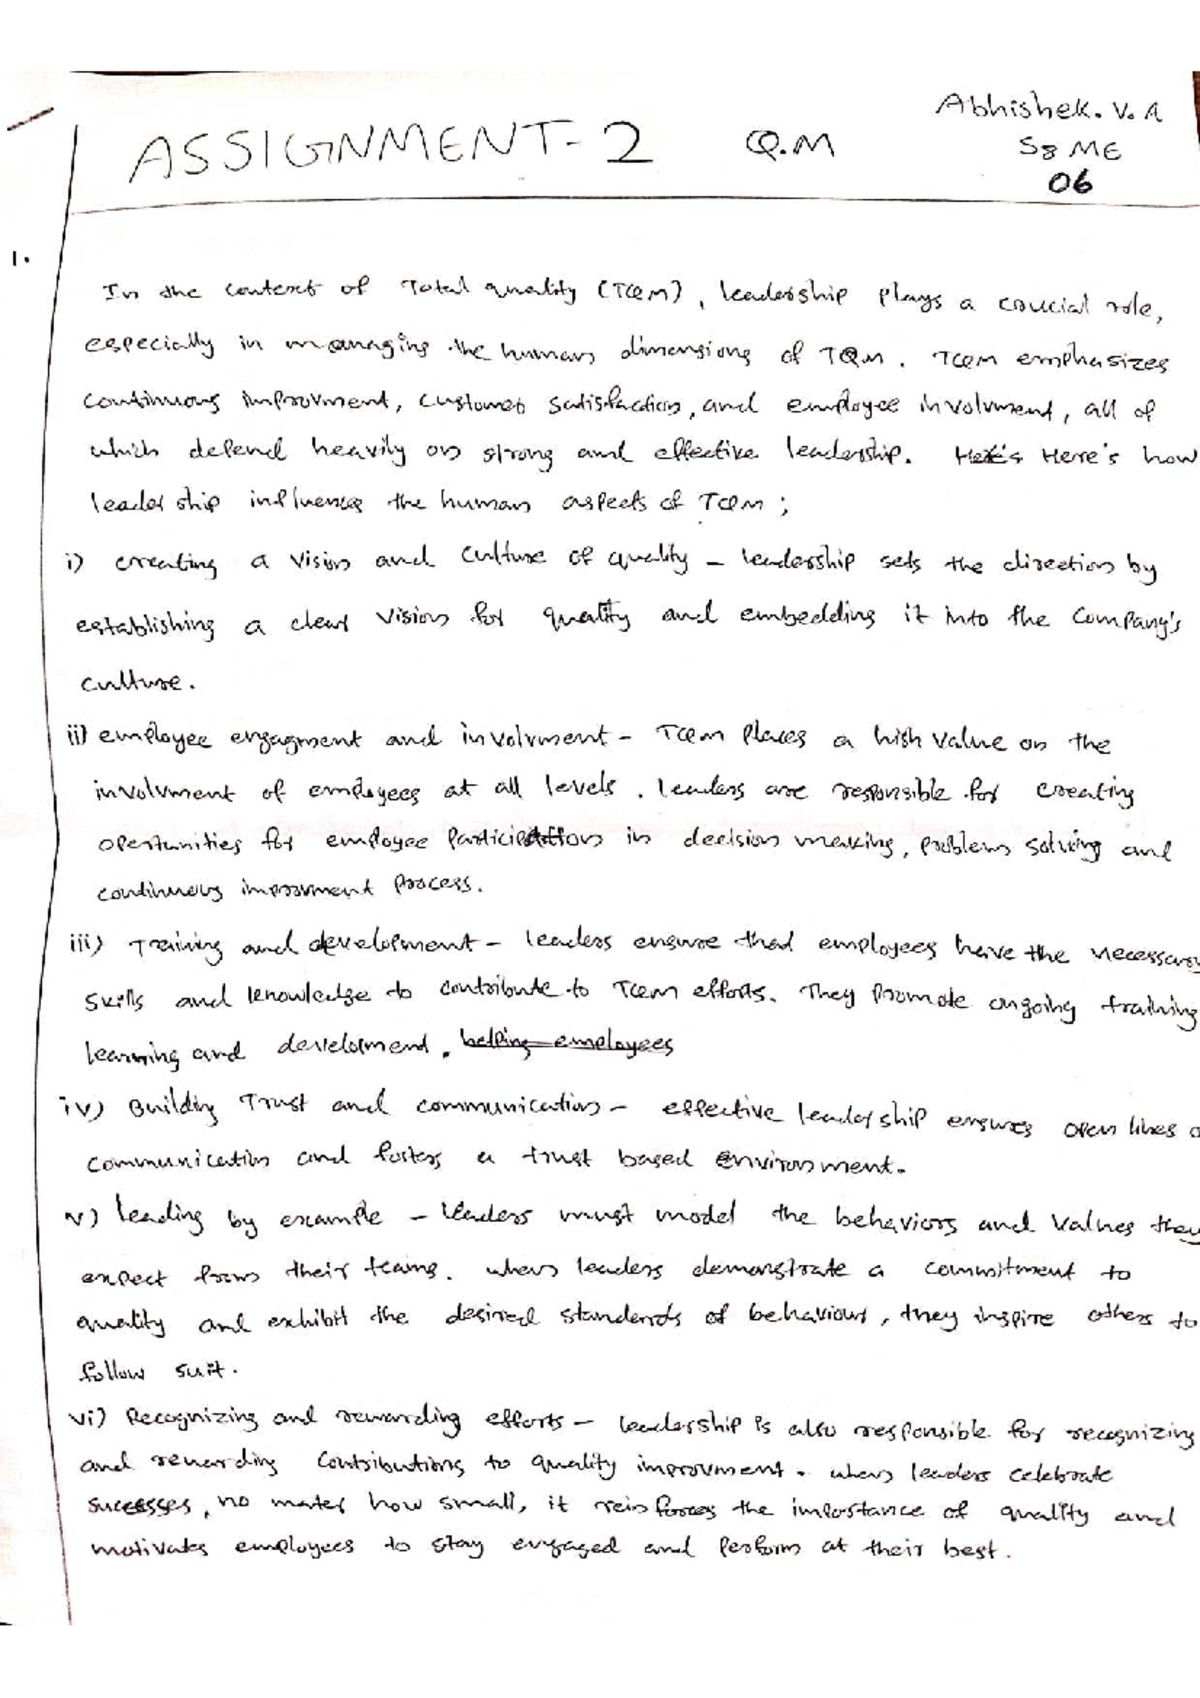 Abhishek. V. A
ASSIGNMENT - 2 Q.M S8 ME
06
1.
In the context of Total quality (TQM), leadership plays a crucial role,
especially in managing the human dimensions of TQM. TQM emphasizes
continuous improvment, customer satisfaction, and employee involvment, all of
which depend heavily on strong and effective leadership. Here's Here's how
leadership influences the human aspects of TQM ;
i) creating a vision and culture of quality - leadership sets the direction by
establishing a clear vision for quality and embedding it into the company's
culture.
ii) employee engagment and involvment - TQM places a high value on the
involvment of employees at all levels. leaders are responsible for creating
opertunities for employee participation in decision making, problem solving and
continuous improvment process.
iii) Training and development - leaders ensure that employees have the necessary
skills and knowledge to contribute to TQM efforts. They promote ongoing training
learning and development. helping employees
iv) Building Trust and communication - effective leadership ensures open lines o
communication and fosters a trust based environment.
v) leading by example - leaders must model the behaviors and values they
expect from their teams. when leaders demonstrate a commitment to
quality and exhibit the desired standards of behaviour, they inspire others to
follow suit.
vi) Recognizing and rewarding efforts - leadership is also responsible for recognizing
and rewarding contributions to quality improvment. when leaders celebrate
sucesses, no mater how small, it reinforces the importance of quality and
motivates employees to stay engaged and perform at their best.